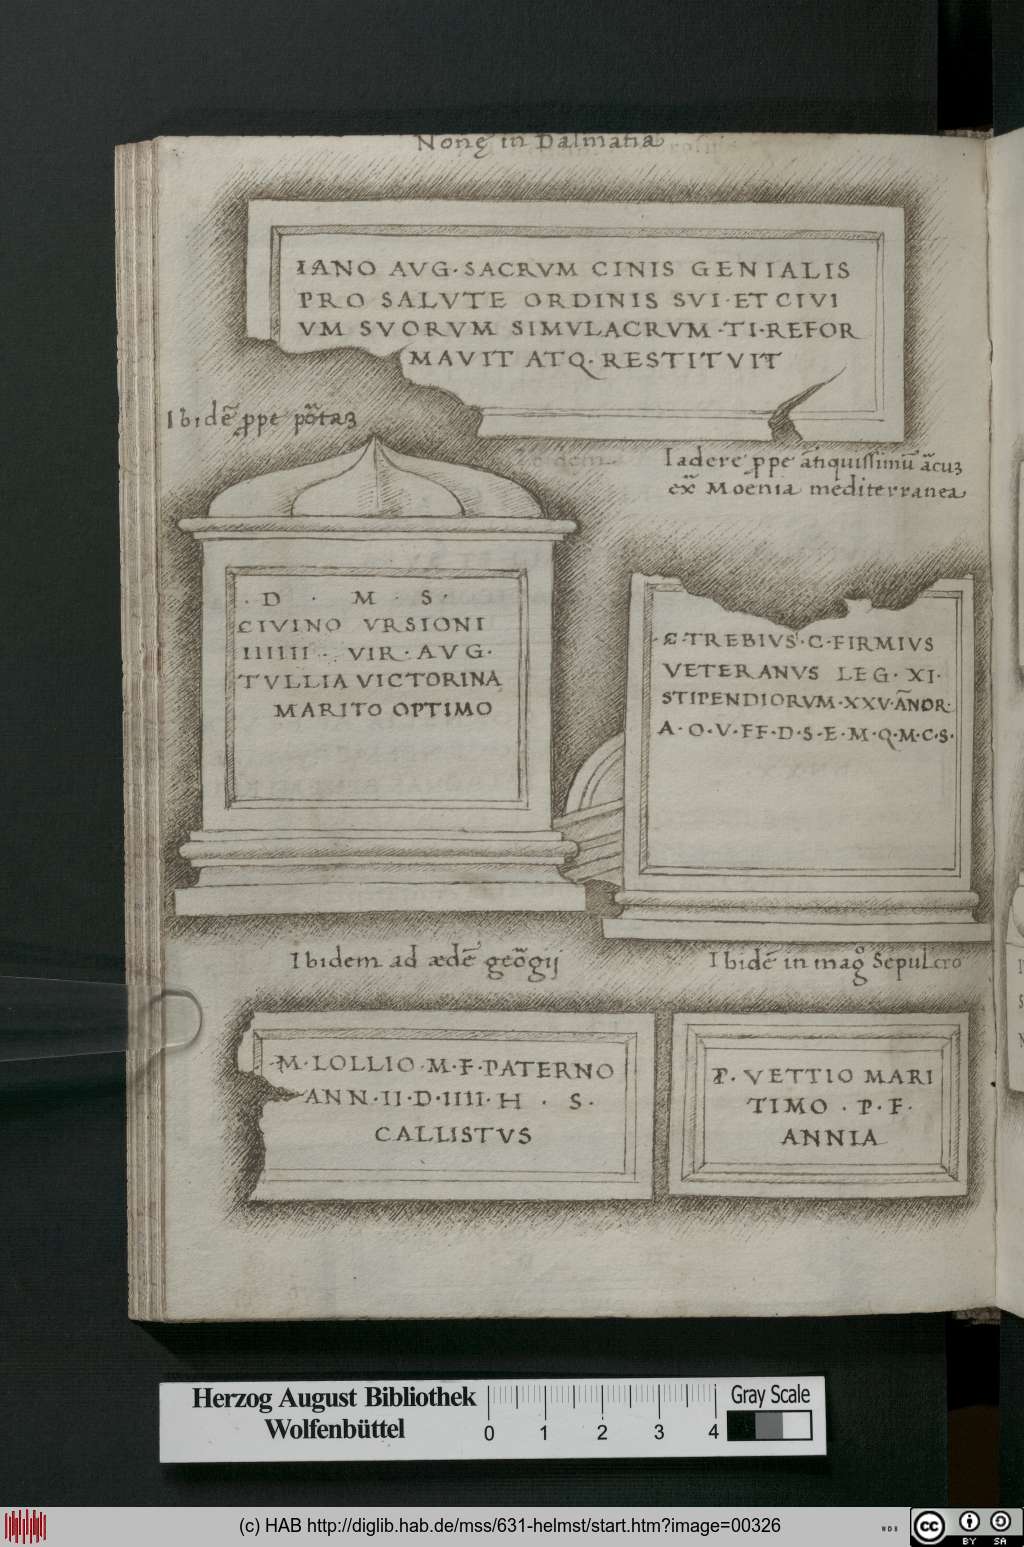 Nonę in Dalmatia
IANO AVG·SACRVM CINIS GENIALIS
PRO SALVTE ORDINIS SVI·ET CIVI
VM SVORVM SIMVLACRVM·TI·REFOR
MAVIT ATQ·RESTITVIT
Ibidē ꝓpe
Iadere ꝓpe
Moenia mediterranea
·D · M · S·
CIVINO VRSIONI
IIIIII · VIR·AVG·
TVLLIA VICTORINA
MARITO OPTIMO
C·TREBIVS·C·FIRMIVS
VETERANVS LEG·XI·
STIPENDIORVM·XXV·ĀNOR·
A·O·V·FF·D·S·E·M·Q·M·C·S·
Ibidem ad ædē geōgij
Ibidē in magº Sepulcro
M·LOLLIO·M·F·PATERNO
ANN·II·D·IIII·H · S·
CALLISTVS
P·VETTIO MARI
TIMO·P·F·
ANNIA
Herzog August Bibliothek
Wolfenbüttel
0 1 2 3 4
Gray Scale
(c) HAB http://diglib.hab.de/mss/631-helmst/start.htm?image=00326
WDB
cc BY SA